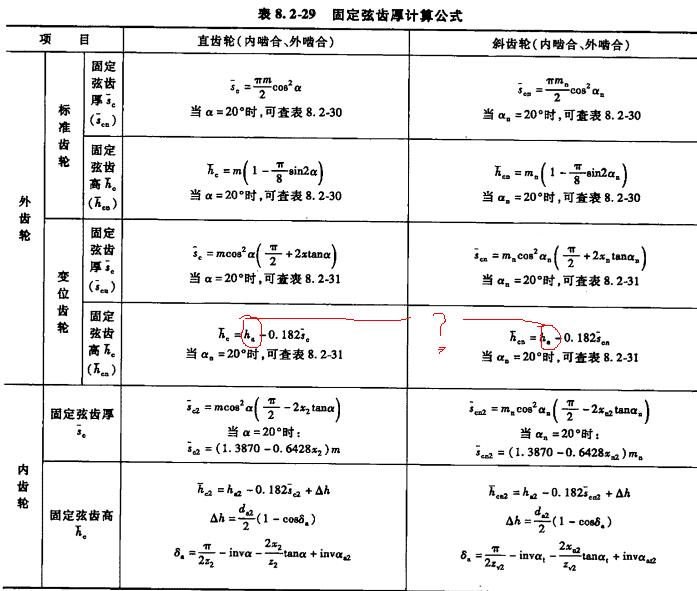 表 8.2-29 固定弦齿厚计算公式
项 目 直齿轮(内啮合、外啮合) 斜齿轮(内啮合、外啮合)
外齿轮
标准齿轮
固定弦齿厚 s̄c (s̄cn)
s̄c = πm/2 cos²α
当 α=20°时,可查表 8.2-30
s̄cn = πmn/2 cos²αn
当 αn=20°时,可查表 8.2-30
固定弦齿高 h̄c (h̄cn)
h̄c = m(1 - π/8 sin2α)
当 α=20°时,可查表 8.2-30
h̄cn = mn(1 - π/8 sin2αn)
当 αn=20°时,可查表 8.2-30
变位齿轮
固定弦齿厚 s̄c (s̄cn)
s̄c = mcos²α(π/2 + 2xtanα)
当 α=20°时,可查表 8.2-31
s̄cn = mncos²αn(π/2 + 2xntanαn)
当 αn=20°时,可查表 8.2-31
固定弦齿高 h̄c (h̄cn)
h̄c = ha - 0.182s̄c
当 αn=20°时,可查表 8.2-31
?
h̄cn = ha - 0.182s̄cn
当 αn=20°时,可查表 8.2-31
内齿轮
固定弦齿厚 s̄c
s̄c2 = mcos²α(π/2 - 2x2tanα)
当 α=20°时:
s̄c2 = (1.3870 - 0.6428x2)m
s̄cn2 = mncos²αn(π/2 - 2xn2tanαn)
当 αn=20°时:
s̄cn2 = (1.3870 - 0.6428xn2)mn
固定弦齿高 h̄c
h̄c2 = ha2 - 0.182s̄c2 + Δh
Δh = da2/2 (1 - cosδa)
δa = π/2z2 - invα - 2x2/z2 tanα + invαa2
h̄cn2 = ha2 - 0.182s̄cn2 + Δh
Δh = da2/2 (1 - cosδa)
δa = π/2zv2 - invαt - 2xn2/zv2 tanαt + invαat2